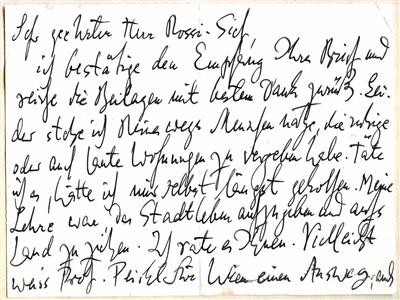 Sehr geehrter Herr Rossi-Sief,
ich bestätige den Empfang Ihres Briefs und
reiche die Beilagen mit bestem Dank zurück. Lei-
der stehe ich Menschen nahe, die ruhige
oder auch laute Wohnungen zu vergeben habe. Täte
ich es, hätte ich mir selbst längst geholfen. Meine
Lehre war, das Stadtleben aufzugeben und aufs
Land zu ziehen. Ich rate es Ihnen. Vielleicht
weiss Prof. für Wien einen Ausweg, auch